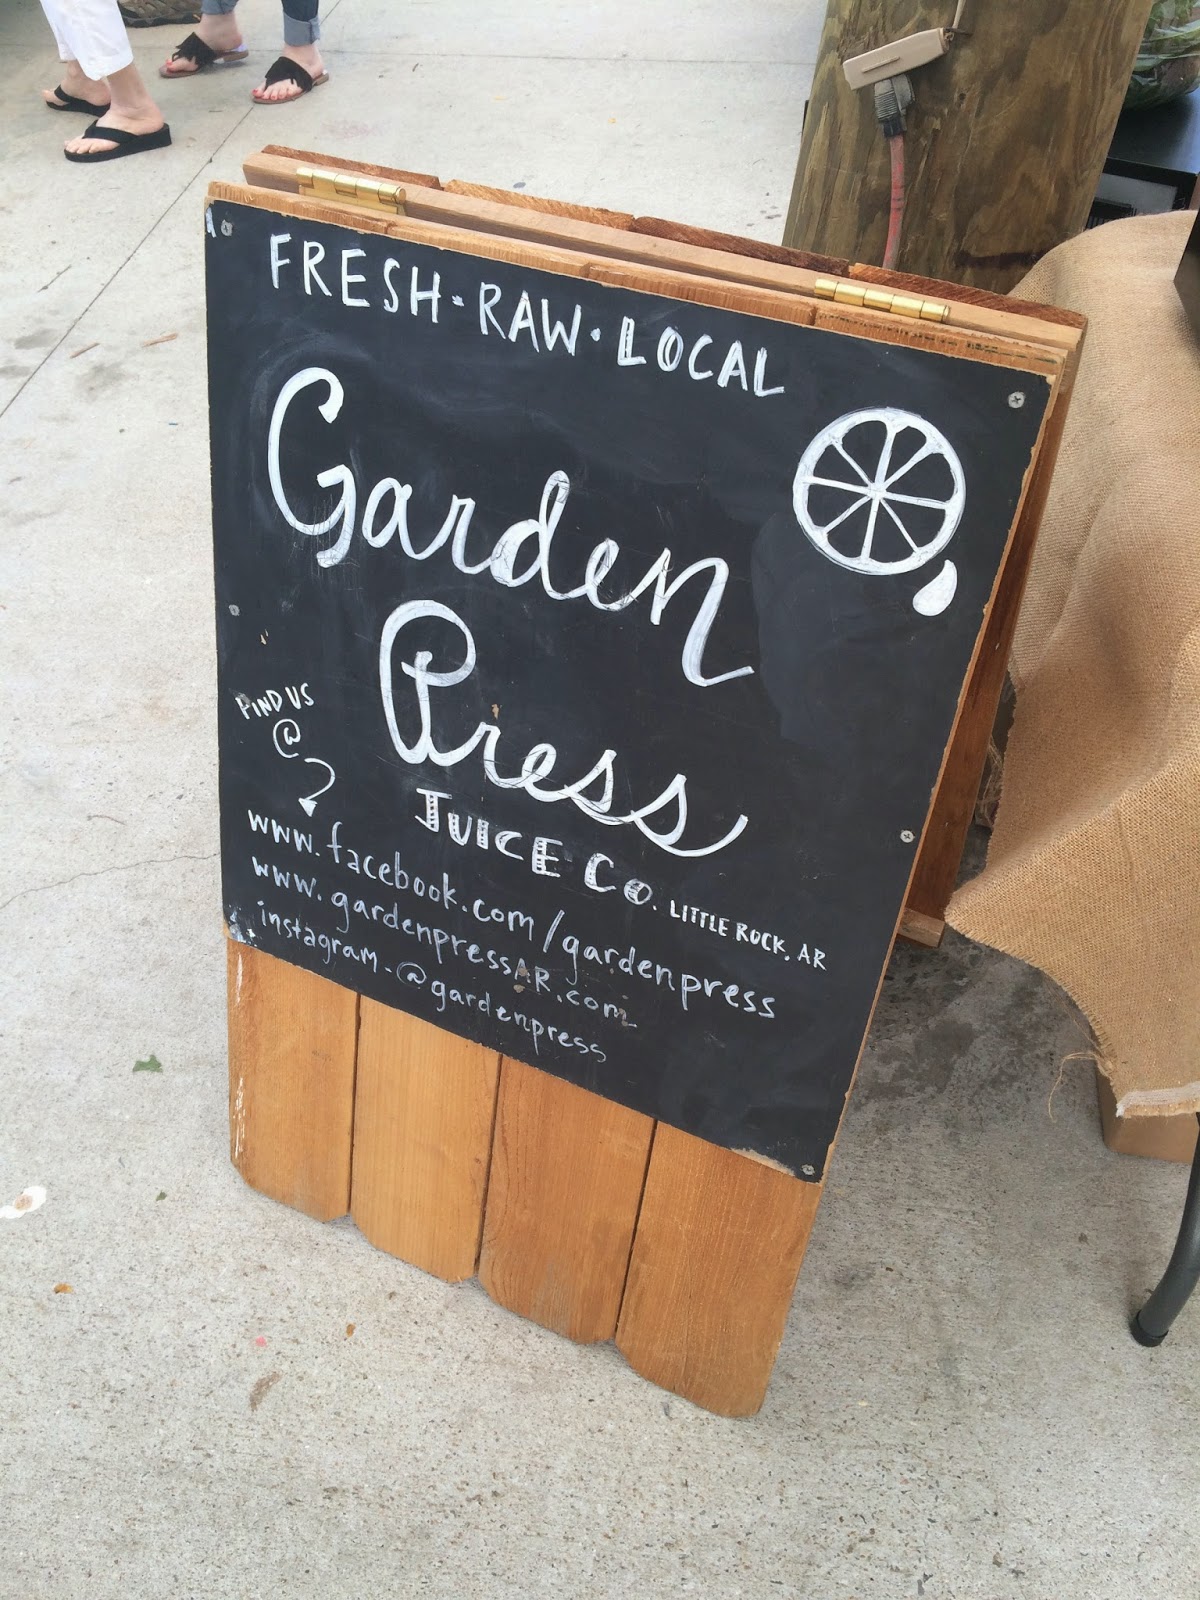 FRESH · RAW · LOCAL
Garden
Press
JUICE CO.
LITTLE ROCK, AR
FIND US
@
www.facebook.com/gardenpress
www.gardenpressAR.com
instagram - @gardenpress